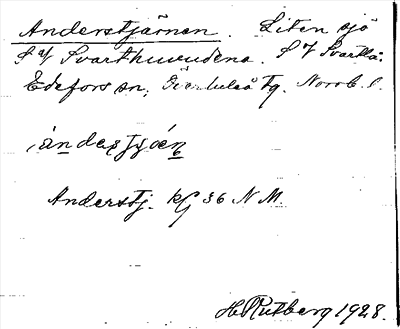 Anderstjärnen. Liten sjö
S ʺ/ Svarthuvudena. S ʺ/ Svartlå.
Edefors sn, Överluleå tg. Norrb. l.
ándastjǿn
Anderstj. kG 36 N M.
H Rutberg 1928.